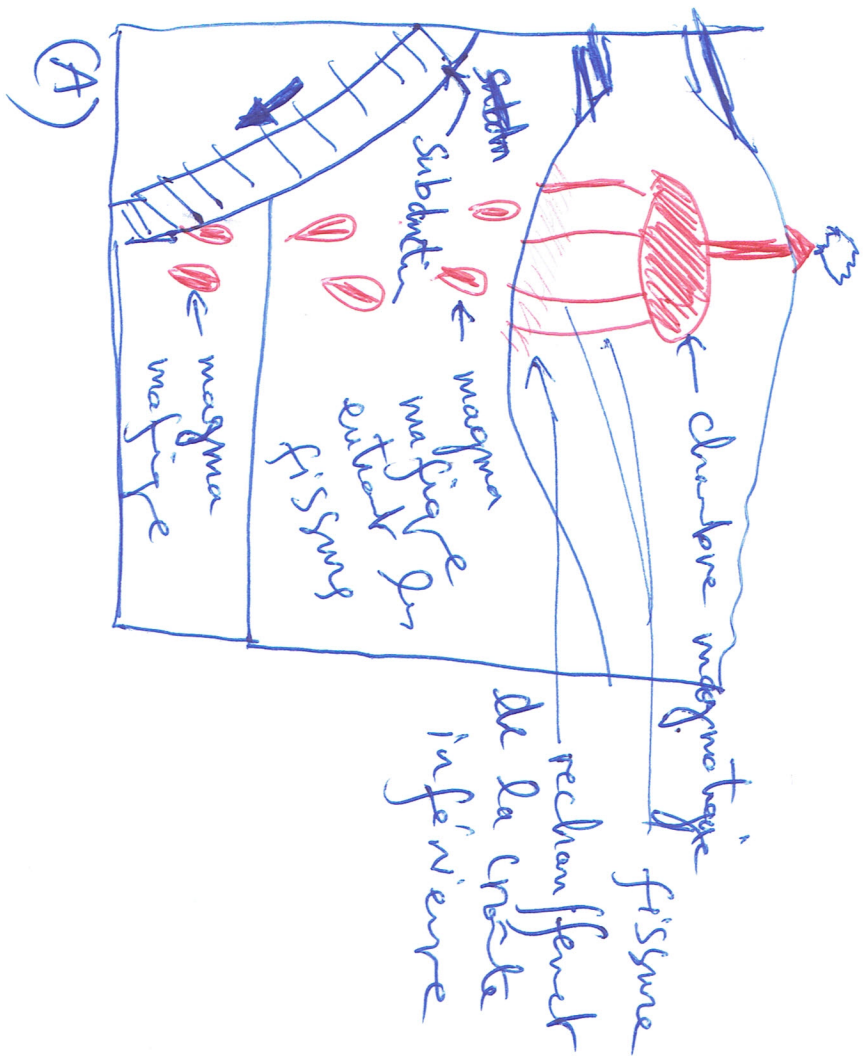 chambre magmatique
fissure
rechauffement
de la croûte
inférieure
Subduction
magma
mafique
fissure
magma
mafique
(A)